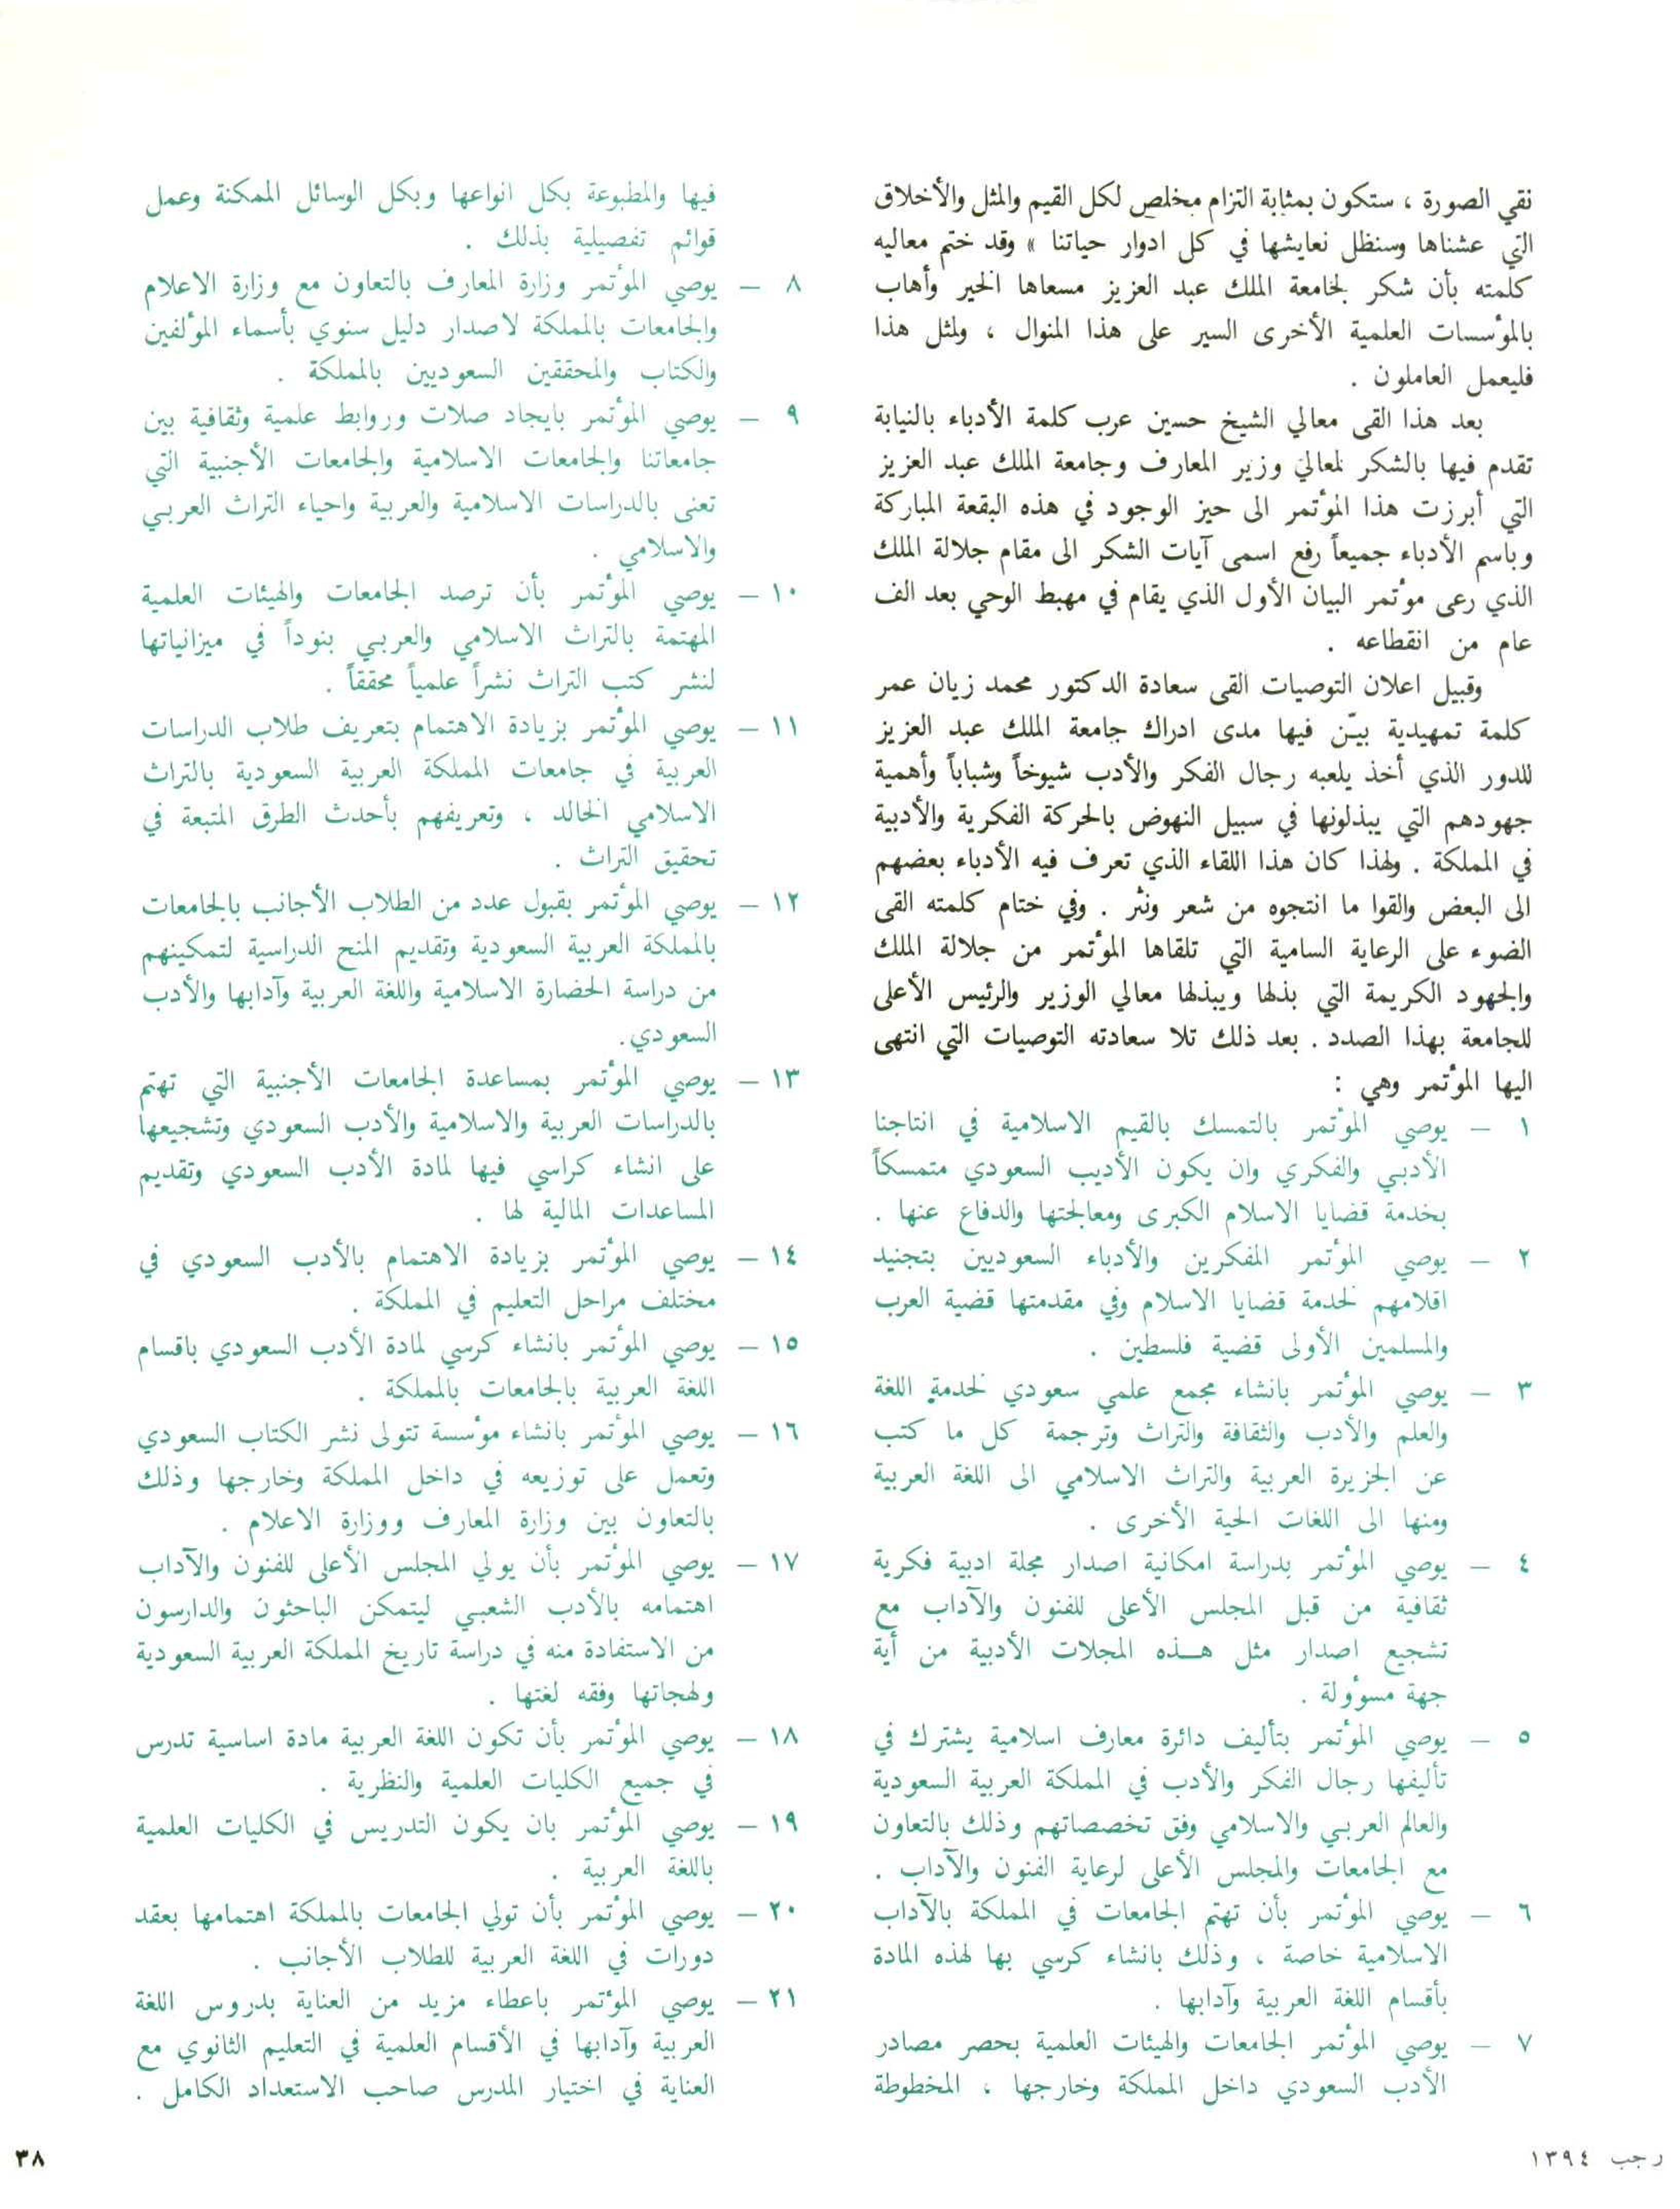 نقي الصورة ، ستكون بمثابة التزام مخلص لكل القيم والمثل والأخلاق
التي عشناها وسنظل نعايشها في كل ادوار حياتنا » وقد ختم معاليه
كلمته بأن شكر لجامعة الملك عبد العزيز مسعاها الخير وأهاب
بالمؤسسات العلمية الأخرى السير على هذا المنوال ، ولمثل هذا
فليعمل العاملون .
بعد هذا القى معالي الشيخ حسين عرب كلمة الأدباء بالنيابة
تقدم فيها بالشكر لمعالي وزير المعارف وجامعة الملك عبد العزيز
التي أبرزت هذا المؤتمر الى حيز الوجود في هذه البقعة المباركة
وباسم الأدباء جميعاً رفع اسمى آيات الشكر الى مقام جلالة الملك
الذي رعى مؤتمر البيان الأول الذي يقام في مهبط الوحي بعد الف
عام من انقطاعه .
وقبيل اعلان التوصيات القى سعادة الدكتور محمد زيان عمر
كلمة تمهيدية بيّن فيها مدى ادراك جامعة الملك عبد العزيز
للدور الذي أخذ يلعبه رجال الفكر والأدب شيوخاً وشباباً وأهمية
جهودهم التي يبذلونها في سبيل النهوض بالحركة الفكرية والأدبية
في المملكة . ولهذا كان هذا اللقاء الذي تعرف فيه الأدباء بعضهم
الى البعض والقوا ما انتجوه من شعر ونثر . وفي ختام كلمته القى
الضوء على الرعاية السامية التي تلقاها المؤتمر من جلالة الملك
والجهود الكريمة التي بذلها ويبذلها معالي الوزير والرئيس الأعلى
للجامعة بهذا الصدد . بعد ذلك تلا سعادته التوصيات التي انتهى
اليها المؤتمر وهي :
١ – يوصي المؤتمر بالتمسك بالقيم الاسلامية في انتاجنا
الأدبي والفكري وان يكون الأديب السعودي متمسكاً
بخدمة قضايا الاسلام الكبرى ومعالجتها والدفاع عنها .
٢ – يوصي المؤتمر المفكرين والأدباء السعوديين بتجنيد
اقلامهم لخدمة قضايا الاسلام وفي مقدمتها قضية العرب
والمسلمين الأولى قضية فلسطين .
٣ – يوصي المؤتمر بانشاء مجمع علمي سعودي لخدمة اللغة
والعلم والأدب والثقافة والتراث وترجمة كل ما كتب
عن الجزيرة العربية والتراث الاسلامي الى اللغة العربية
ومنها الى اللغات الحية الأخرى .
٤ – يوصي المؤتمر بدراسة امكانية اصدار مجلة ادبية فكرية
ثقافية من قبل المجلس الأعلى للفنون والآداب مع
تشجيع اصدار مثل هـذه المجلات الأدبية من أية
جهة مسؤولة .
٥ – يوصي المؤتمر بتأليف دائرة معارف اسلامية يشترك في
تأليفها رجال الفكر والأدب في المملكة العربية السعودية
والعالم العربي والاسلامي وفق تخصصاتهم وذلك بالتعاون
مع الجامعات والمجلس الأعلى لرعاية الفنون والآداب .
٦ – يوصي المؤتمر بأن تهتم الجامعات في المملكة بالآداب
الاسلامية خاصة ، وذلك بانشاء كرسي بها لهذه المادة
بأقسام اللغة العربية وآدابها .
٧ – يوصي المؤتمر الجامعات والهيئات العلمية بحصر مصادر
الأدب السعودي داخل المملكة وخارجها ، المخطوطة
فيها والمطبوعة بكل انواعها وبكل الوسائل الممكنة وعمل
قوائم تفصيلية بذلك .
٨ – يوصي المؤتمر وزارة المعارف بالتعاون مع وزارة الاعلام
والجامعات بالمملكة لاصدار دليل سنوي بأسماء المؤلفين
والكتاب والمحققين السعوديين بالمملكة .
٩ – يوصي المؤتمر بايجاد صلات وروابط علمية وثقافية بين
جامعاتنا والجامعات الاسلامية والجامعات الأجنبية التي
تعنى بالدراسات الاسلامية والعربية واحياء التراث العربي
والاسلامي .
١٠ – يوصي المؤتمر بأن ترصد الجامعات والهيئات العلمية
المهتمة بالتراث الاسلامي والعربي بنوداً في ميزانياتها
لنشر كتب التراث نشراً علمياً محققاً .
١١ – يوصي المؤتمر بزيادة الاهتمام بتعريف طلاب الدراسات
العربية في جامعات المملكة العربية السعودية بالتراث
الاسلامي الخالد ، وتعريفهم بأحدث الطرق المتبعة في
تحقيق التراث .
١٢ – يوصي المؤتمر بقبول عدد من الطلاب الأجانب بالجامعات
بالمملكة العربية السعودية وتقديم المنح الدراسية لتمكينهم
من دراسة الحضارة الاسلامية واللغة العربية وآدابها والأدب
السعودي.
١٣ – يوصي المؤتمر بمساعدة الجامعات الأجنبية التي تهتم
بالدراسات العربية والاسلامية والأدب السعودي وتشجيعها
على انشاء كراسي فيها لمادة الأدب السعودي وتقديم
المساعدات المالية لها .
١٤ – يوصي المؤتمر بزيادة الاهتمام بالأدب السعودي في
مختلف مراحل التعليم في المملكة .
١٥ – يوصي المؤتمر بانشاء كرسي لمادة الأدب السعودي باقسام
اللغة العربية بالجامعات بالمملكة .
١٦ – يوصي المؤتمر بانشاء مؤسسة تتولى نشر الكتاب السعودي
وتعمل على توزيعه في داخل المملكة وخارجها وذلك
بالتعاون بين وزارة المعارف ووزارة الاعلام .
١٧ – يوصي المؤتمر بأن يولي المجلس الأعلى للفنون والآداب
اهتمامه بالأدب الشعبي ليتمكن الباحثون والدارسون
من الاستفادة منه في دراسة تاريخ المملكة العربية السعودية
ولهجاتها وفقه لغتها .
١٨ – يوصي المؤتمر بأن تكون اللغة العربية مادة اساسية تدرس
في جميع الكليات العلمية والنظرية .
١٩ – يوصي المؤتمر بان يكون التدريس في الكليات العلمية
باللغة العربية .
٢٠ – يوصي المؤتمر بأن تولي الجامعات بالمملكة اهتمامها بعقد
دورات في اللغة العربية للطلاب الأجانب .
٢١ – يوصي المؤتمر باعطاء مزيد من العناية بدروس اللغة
العربية وآدابها في الأقسام العلمية في التعليم الثانوي مع
العناية في اختيار المدرس صاحب الاستعداد الكامل .
رجب ١٣٩٤
٣٨